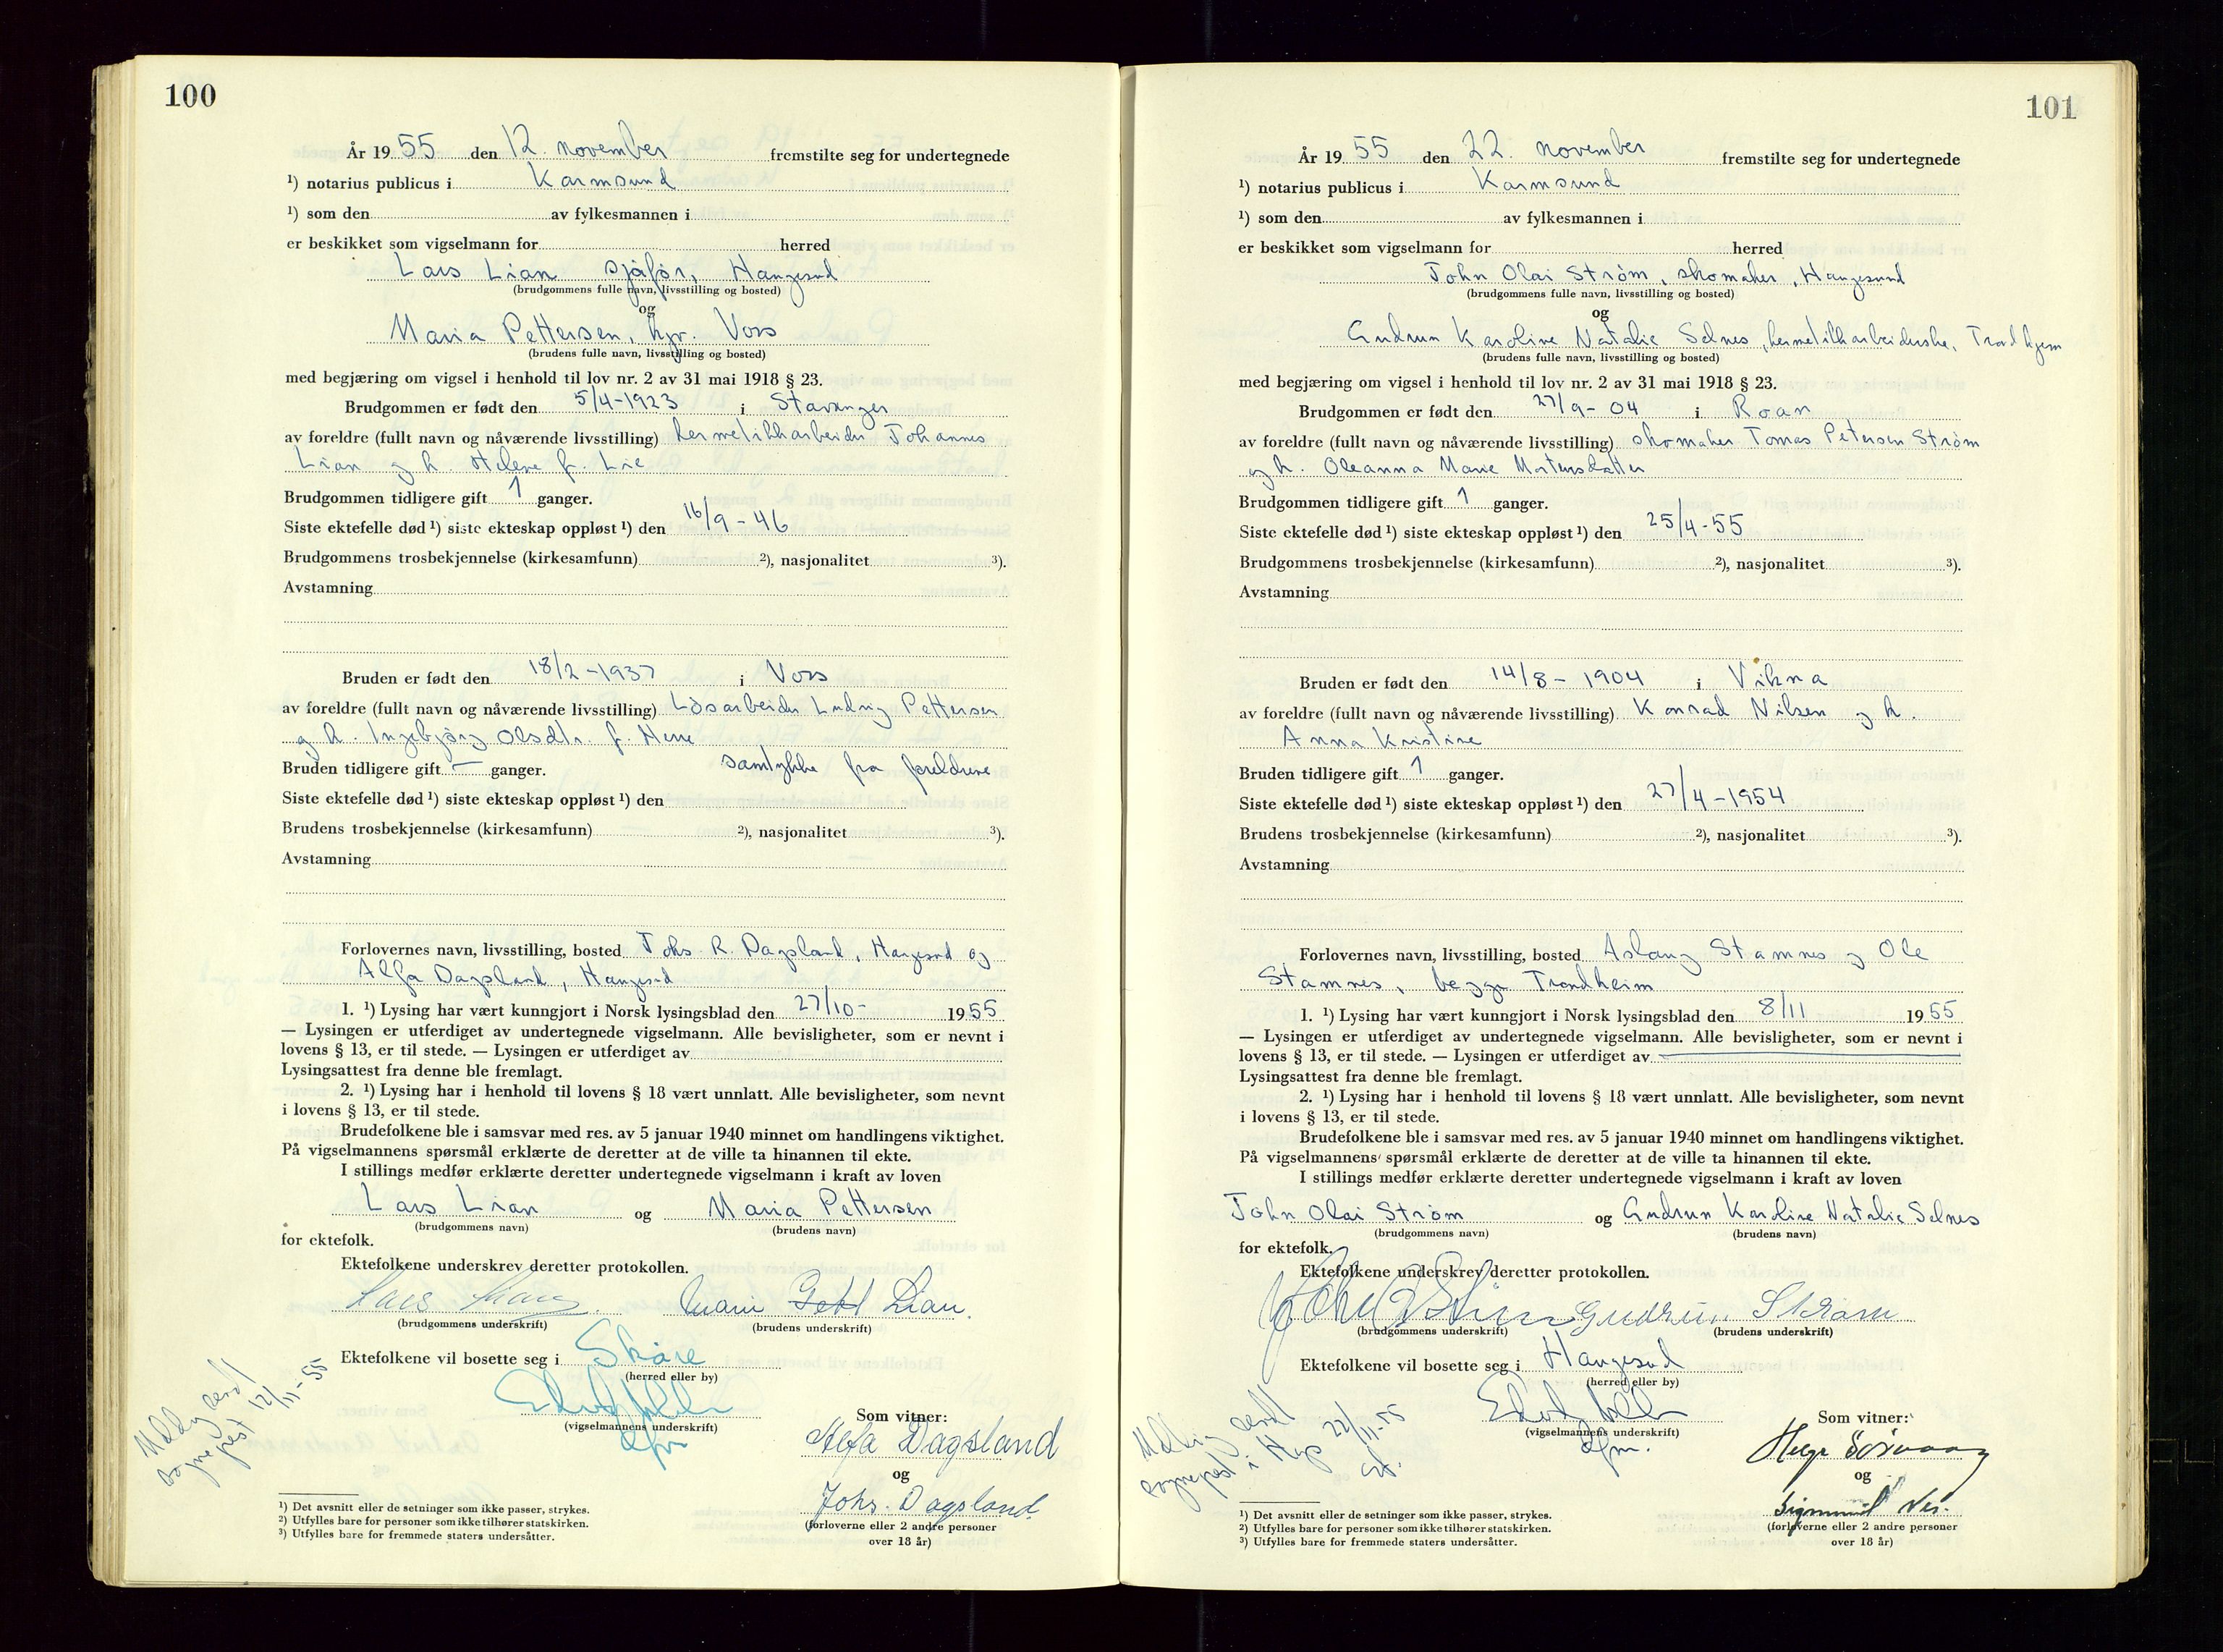 100
År 1955 den 12. november fremstilte seg for undertegnede
¹) notarius publicus i Karmsund
¹) som den av fylkesmannen i
er beskikket som vigselmann for herred
Lars Lian sjåfør, Haugesund
(brudgommens fulle navn, livsstilling og bosted)
og
Maria Pettersen, hjv. Voss
(brudens fulle navn, livsstilling og bosted)
med begjæring om vigsel i henhold til lov nr. 2 av 31 mai 1918 § 23.
Brudgommen er født den 5/4-1923 i Stavanger
av foreldre (fullt navn og nåværende livsstilling) hermetikkarbeider Johannes
Lian og h. Helene f. Lie
Brudgommen tidligere gift 1 ganger.
Siste ektefelle død ¹) siste ekteskap oppløst ¹) den 16/9-46
Brudgommens trosbekjennelse (kirkesamfunn) ²), nasjonalitet ³).
Avstamning
Bruden er født den 18/2-1937 i Voss
av foreldre (fullt navn og nåværende livsstilling) Løsarbeider Ludvig Pettersen
og h. Ingebjørg Olsdtr. f. Herre
Bruden tidligere gift — ganger. samtykke fra foreldrene
Siste ektefelle død ¹) siste ekteskap oppløst ¹) den
Brudens trosbekjennelse (kirkesamfunn) ²), nasjonalitet ³).
Avstamning
Forlovernes navn, livsstilling, bosted Johs. R. Dagsland, Haugesund og
Alfa Dagsland, Haugesund
1. ¹) Lysing har vært kunngjort i Norsk lysingsblad den 27/10- 1955
— Lysingen er utferdiget av undertegnede vigselmann. Alle bevisligheter, som er nevnt i
lovens § 13, er til stede. — Lysingen er utferdiget av
Lysingsattest fra denne ble fremlagt.
2. ¹) Lysing har i henhold til lovens § 18 vært unnlatt. Alle bevisligheter, som nevnt
i lovens § 13, er til stede.
Brudefolkene ble i samsvar med res. av 5 januar 1940 minnet om handlingens viktighet.
På vigselmannens spørsmål erklærte de deretter at de ville ta hinannen til ekte.
I stillings medfør erklærte deretter undertegnede vigselmann i kraft av loven
Lars Lian og Maria Pettersen
(brudgommens navn) (brudens navn)
for ektefolk.
Ektefolkene underskrev deretter protokollen.
Lars Lian. Lian.
(brudgommens underskrift) (brudens underskrift)
Ektefolkene vil bosette seg i Skåre
(herred eller by)
(vigselmannens underskrift)
dfm
sendt
12/11-55
Som vitner:
Alfa Dagsland
og
Johs. Dagsland.
(forloverne eller 2 andre personer
over 18 år)
¹) Det avsnitt eller de setninger som ikke passer, strykes.
²) Utfylles bare for personer som ikke tilhører statskirken.
³) Utfylles bare for fremmede staters undersåtter.
101
År 1955 den 22. november fremstilte seg for undertegnede
¹) notarius publicus i Karmsund
¹) som den av fylkesmannen i
er beskikket som vigselmann for herred
John Olai Strøm, skomaker, Haugesund
(brudgommens fulle navn, livsstilling og bosted)
og
Gudrun Karoline Natalie Selnes, hermetikkarbeiderske, Trondhjem
(brudens fulle navn, livsstilling og bosted)
med begjæring om vigsel i henhold til lov nr. 2 av 31 mai 1918 § 23.
Brudgommen er født den 27/9-04 i Roan
av foreldre (fullt navn og nåværende livsstilling) skomaker Tomas Petersen Strøm
og h. Oleanna Marie Mortensdatter
Brudgommen tidligere gift 1 ganger.
Siste ektefelle død ¹) siste ekteskap oppløst ¹) den 25/4-55
Brudgommens trosbekjennelse (kirkesamfunn) ²), nasjonalitet ³).
Avstamning
Bruden er født den 14/8-1904 i Vikna
av foreldre (fullt navn og nåværende livsstilling) Konrad Nilsen og h.
Anna Kristine
Bruden tidligere gift 1 ganger.
Siste ektefelle død ¹) siste ekteskap oppløst ¹) den 27/4-1954
Brudens trosbekjennelse (kirkesamfunn) ²), nasjonalitet ³).
Avstamning
Forlovernes navn, livsstilling, bosted Aslaug Stamnes og Ole
Stamnes, begge Trondheim
1. ¹) Lysing har vært kunngjort i Norsk lysingsblad den 8/11 1955
— Lysingen er utferdiget av undertegnede vigselmann. Alle bevisligheter, som er nevnt i
lovens § 13, er til stede. — Lysingen er utferdiget av
Lysingsattest fra denne ble fremlagt.
2. ¹) Lysing har i henhold til lovens § 18 vært unnlatt. Alle bevisligheter, som nevnt
i lovens § 13, er til stede.
Brudefolkene ble i samsvar med res. av 5 januar 1940 minnet om handlingens viktighet.
På vigselmannens spørsmål erklærte de deretter at de ville ta hinannen til ekte.
I stillings medfør erklærte deretter undertegnede vigselmann i kraft av loven
John Olai Strøm og Gudrun Karoline Natalie Selnes
(brudgommens navn) (brudens navn)
for ektefolk.
Ektefolkene underskrev deretter protokollen.
John O Strøm Gudrun Strøm
(brudgommens underskrift) (brudens underskrift)
Ektefolkene vil bosette seg i Haugesund
(herred eller by)
(vigselmannens underskrift)
dfm.
sendt
sognepest i Hgs 22/11-55
Som vitner:
Helge
og
Sigmund Nes.
(forloverne eller 2 andre personer
over 18 år)
¹) Det avsnitt eller de setninger som ikke passer, strykes.
²) Utfylles bare for personer som ikke tilhører statskirken.
³) Utfylles bare for fremmede staters undersåtter.